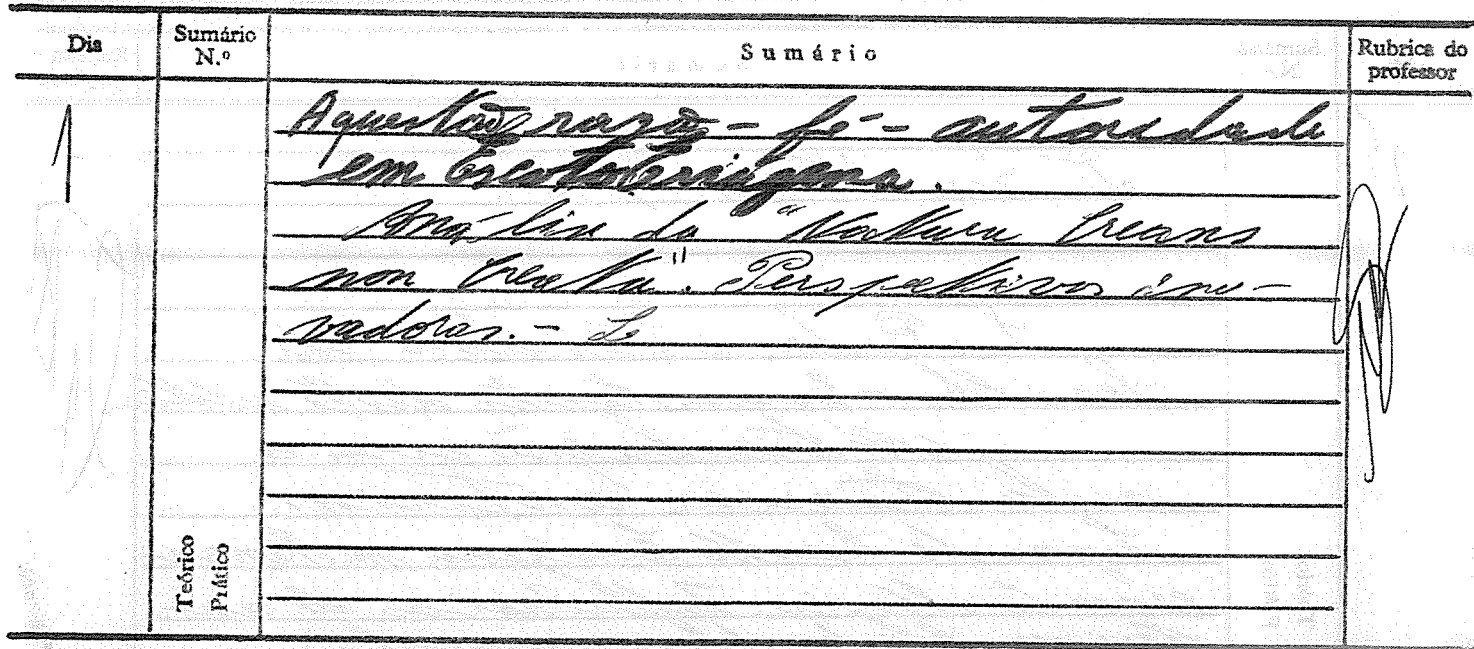 Dia
Sumário N.º
Sumário
Rubrica do professor
1
A questão razão - fé - autoridade
em Escoto Eriúgena.
Análise da "Natura Creans
non Creata". Perspectivas ino-
vadoras. -
Teórico
Prático